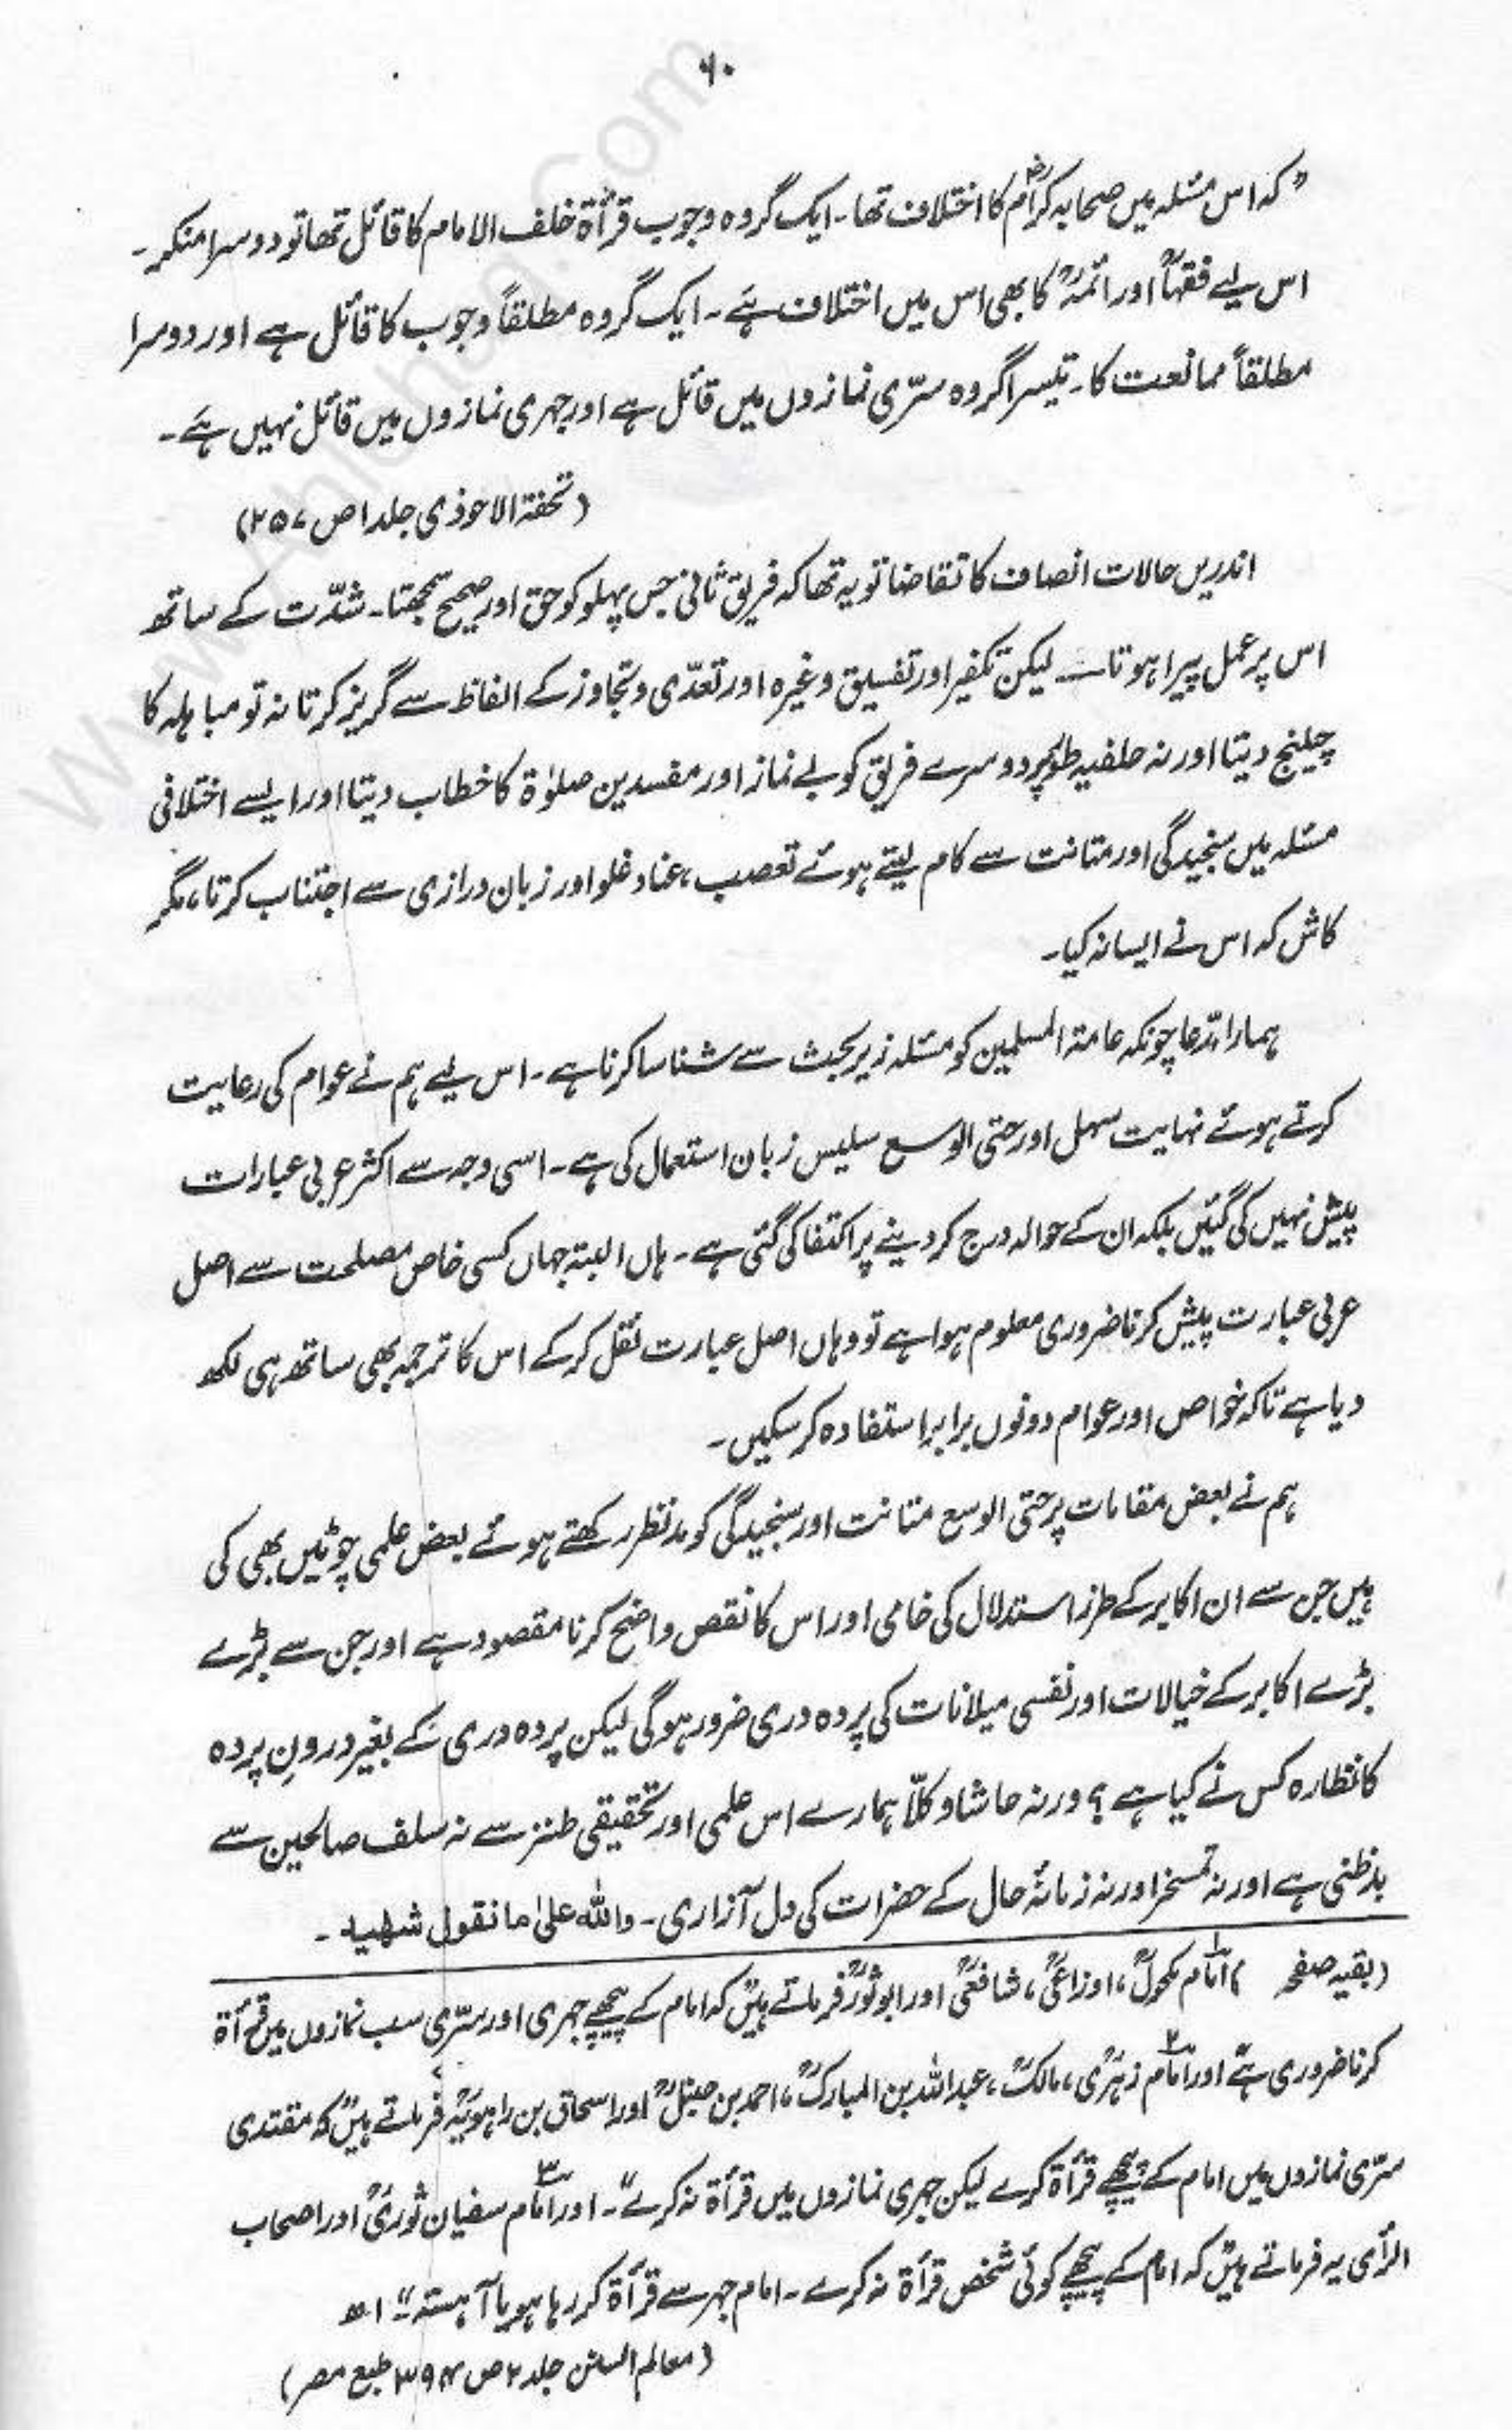 ۶۰
”کہ اس مسئلہ میں صحابہ کرامؓ کا اختلاف تھا۔ ایک گروہ وجوب قرأۃ خلف الامام کا قائل تھا تو دوسرا منکر۔
اس لیے فقہاؒ اور ائمہؒ کا بھی اس میں اختلاف ہے۔ ایک گروہ مطلقاً وجوب کا قائل ہے اور دوسرا
مطلقاً ممانعت کا۔ تیسرا گروہ سرّی نمازوں میں قائل ہے اور جہری نمازوں میں قائل نہیں ہے۔
(تحفۃ الاحوذی جلد ۱ ص ۲۵۷)
اندریں حالات انصاف کا تقاضا تو یہ تھا کہ فریق ثانی جس پہلو کو حق اور صحیح سمجھتا۔ شدّت کے ساتھ
اس پر عمل پیرا ہوتا ــــ لیکن تکفیر اور تفسیق وغیرہ اور تعدّی و تجاوز کے الفاظ سے گریز کرتا نہ تو مباہلہ کا
چیلنج دیتا اور نہ حلفیہ طور پر دوسرے فریق کو بے نماز اور مفسدین صلوٰۃ کا خطاب دیتا اور ایسے اختلافی
مسئلہ میں سنجیدگی اور متانت سے کام لیتے ہوئے تعصب، عناد غلو اور زبان درازی سے اجتناب کرتا، مگر
کاش کہ اس نے ایسا نہ کیا۔
ہمارا مدّعا چونکہ عامۃ المسلمین کو مسئلہ زیر بحث سے شناسا کرنا ہے۔ اس لیے ہم نے عوام کی رعایت
کرتے ہوئے نہایت سہل اور حتی الوسع سلیس زبان استعمال کی ہے۔ اسی وجہ سے اکثر عربی عبارات
پیش نہیں کی گئیں بلکہ ان کے حوالہ درج کر دینے پر اکتفا کی گئی ہے۔ ہاں البتہ جہاں کسی خاص مصلحت سے اصل
عربی عبارت پیش کرنا ضروری معلوم ہوا ہے تو وہاں اصل عبارت نقل کر کے اس کا ترجمہ بھی ساتھ ہی لکھ
دیا ہے تاکہ خواص اور عوام دونوں برابر استفادہ کر سکیں۔
ہم نے بعض مقامات پر حتی الوسع متانت اور سنجیدگی کو مدنظر رکھتے ہوئے بعض علمی چوٹیں بھی کی
ہیں جن سے ان اکابر کے طرز استدلال کی خامی اور اس کا نقص واضح کرنا مقصود ہے اور جن سے بڑے
بڑے اکابر کے خیالات اور نفسی میلانات کی پردہ دری ضرور ہوگی لیکن پردہ دری کے بغیر درونِ پردہ
کا نظارہ کس نے کیا ہے؟ ورنہ حاشا و کلّا ہمارے اس علمی اور تحقیقی طنز سے نہ سلف صالحین سے
بدظنی ہے اور نہ تمسخر اور نہ زمانۂ حال کے حضرات کی دل آزاری۔ واللہ علیٰ ما نقول شھید۔
(بقیہ صفحہ ) ۱ امام مکحولؒ، اوزاعیؒ، شافعیؒ اور ابو ثورؒ فرماتے ہیں کہ امام کے پیچھے جہری اور سرّی سب نمازوں میں قرأۃ
کرنا ضروری ہے اور ۲ امام زہریؒ، مالکؒ، عبداللہ بن المبارکؒ، احمد بن حنبلؒ اور اسحاق بن راہویہؒ فرماتے ہیں کہ مقتدی
سرّی نمازوں میں امام کے پیچھے قرأۃ کرے لیکن جہری نمازوں میں قرأۃ نہ کرے“۔ اور ۳ امام سفیان ثوریؒ اور اصحاب
الرأی یہ فرماتے ہیں کہ امام کے پیچھے کوئی شخص قرأۃ نہ کرے۔ امام جہر سے قرأۃ کر رہا ہو یا آہستہ“ اھ
(معالم السنن جلد ۲ ص ۳۹۴ طبع مصر)
www.Ahlehaq.Com